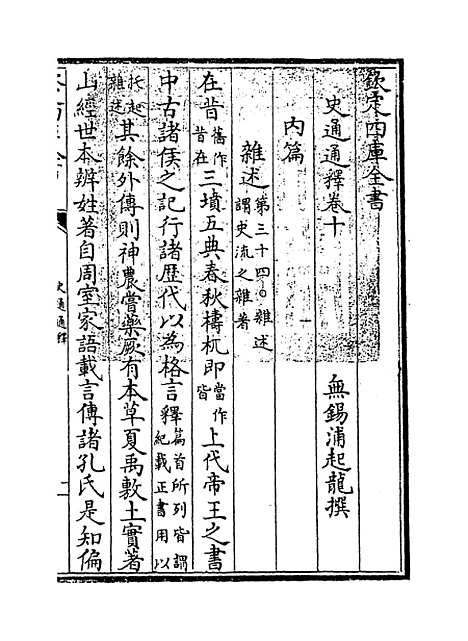 欽定四庫全書
史通通釋卷十
無錫浦起龍撰
內篇
雜述第三十四○雜述謂史流之雜著
在昔舊作昔在三墳五典春秋檮杌即當作皆上代帝王之書
中古諸侯之記行諸歷代以為格言釋篇首所列皆謂紀載正書用以
托起雜述其餘外傳則神農嘗藥厥有本草夏禹敷土實著
山經世本辨姓著自周室家語載言傳諸孔氏是知偏
史通通釋
一